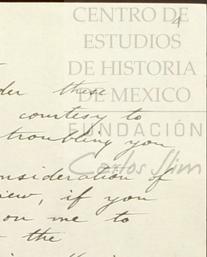 4
CENTRO DE
ESTUDIOS
DE HISTORIA
DE MEXICO
FUNDACIÓN
Carlos Slim
these
courtesy to
troubling you
consideration of
view, if you
on me to
the